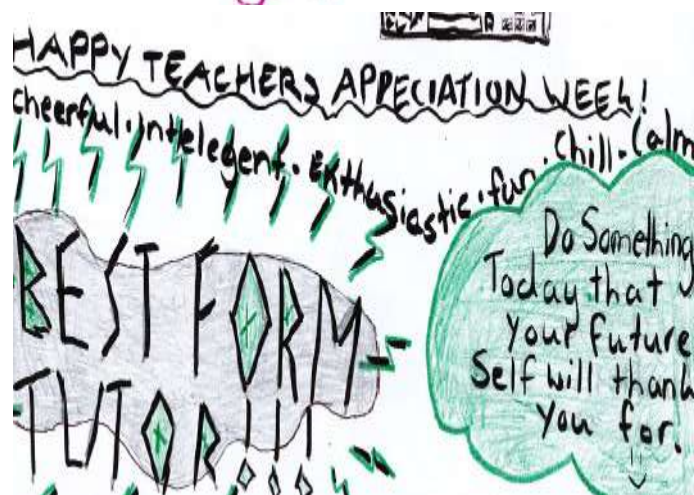 HAPPY TEACHERS APPECIATION WEEK!
cheerful.intelegent.Enthusiastic.fun.Chill.Calm
BEST FORM
TUTOR!!!
Do Something
Today that
your future
Self will thank
you for.